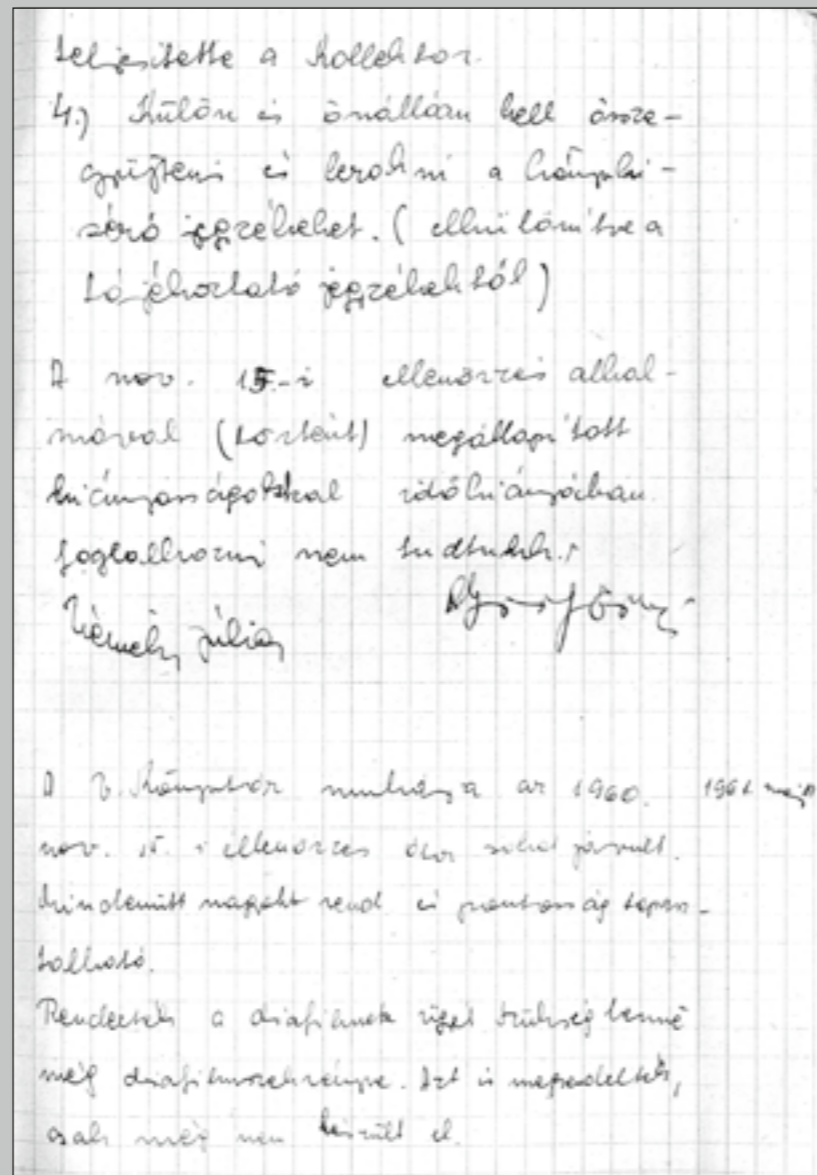 teljesítette a Kollektor.
4.) Külön és önállóan kell össze-
gyűjteni és lerakni a könyvki-
sérő jegyzékeket. (elkülönítve a
tájékoztató jegyzékektől)
A nov. 15.-i ellenőrzés alkal-
mával (történt) megállapított
hiányosságokkal időhiányában
foglalkozni nem tudtunk.
Júlia
A Könyvtár munkája az 1960. 1961 máj.
nov. 15. i ellenőrzés óta sokat javult.
Mindenütt nagyobb rend és pontosság tapasz-
talható.
Rendezték a diafilmek szükség lenne
még diafilmszekrényre. Azt is megrendelték,
csak még nem készült el.